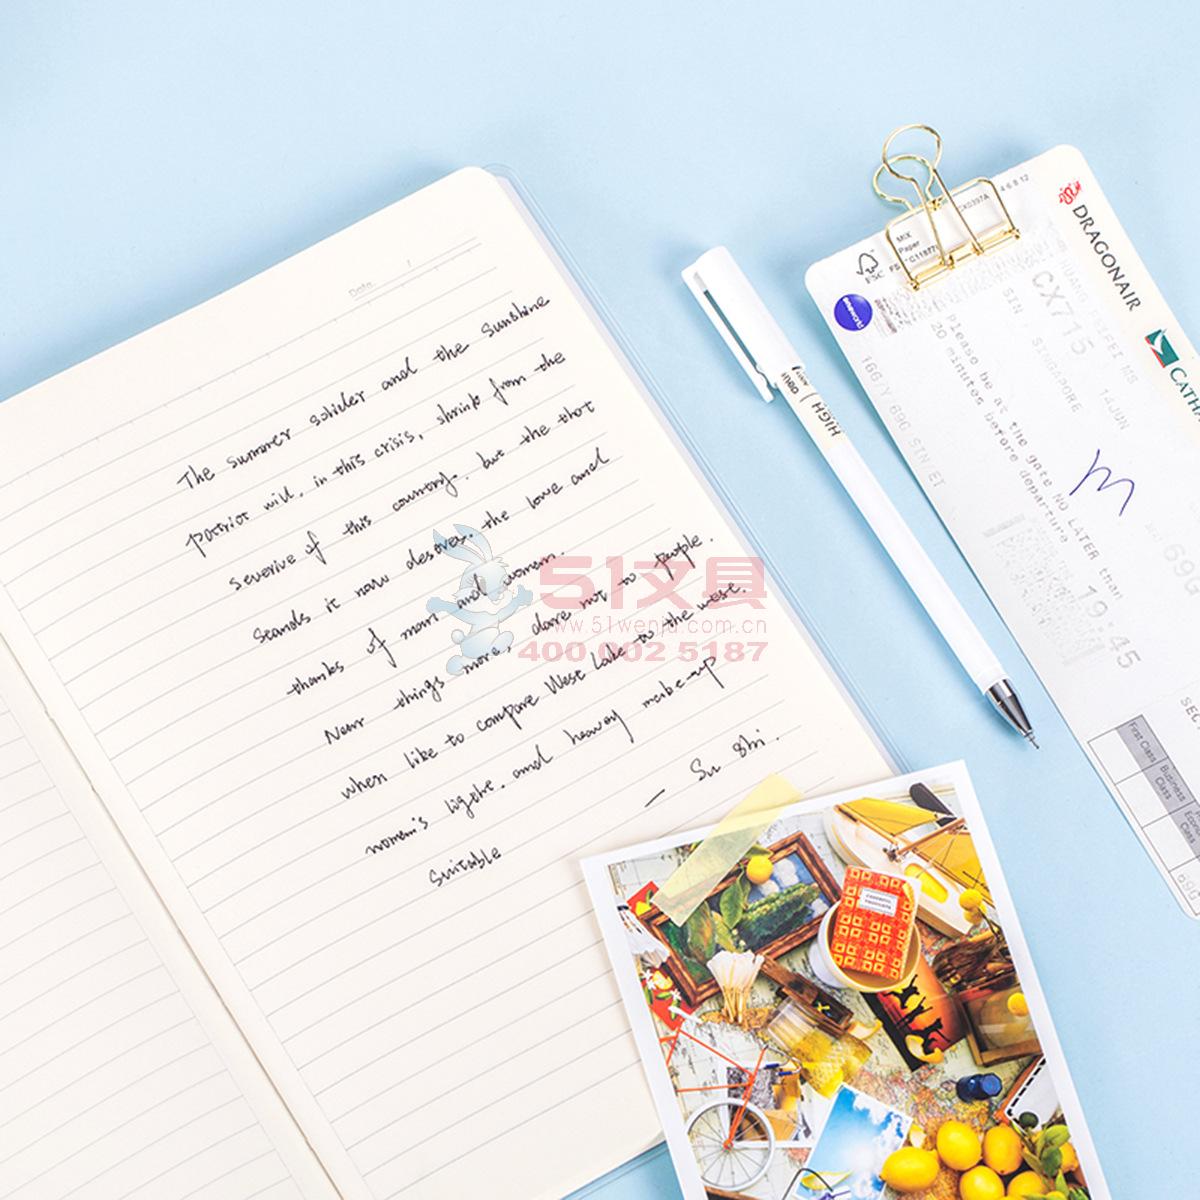 Date.
The summer solider and the Sunshine
patriot will, in this crisis, shrink from the
severive of this country. but the that
Seands it now deserves. the love and
thanks of man and women.
Near things more, dare not to people.
when like to compare West Lake to the west.
women's lighte. and heavy make-up
Suitable
— Su Shi.
51文具
www.51wenju.com.cn
400 002 5187
deli
HIGH
DRAGONAIR
CATHA
MIX
Paper
FSC
FS C11877
CX0397A
4 6 8 12
oneworld
MS
CX715
14JUN
SIN
SINGAPORE
please be at the gate NO LATER than
20 minutes before departure
19:45
69G
16G/Y 69G SIN/ET
SEC
First Class
Business Class
Class
69G